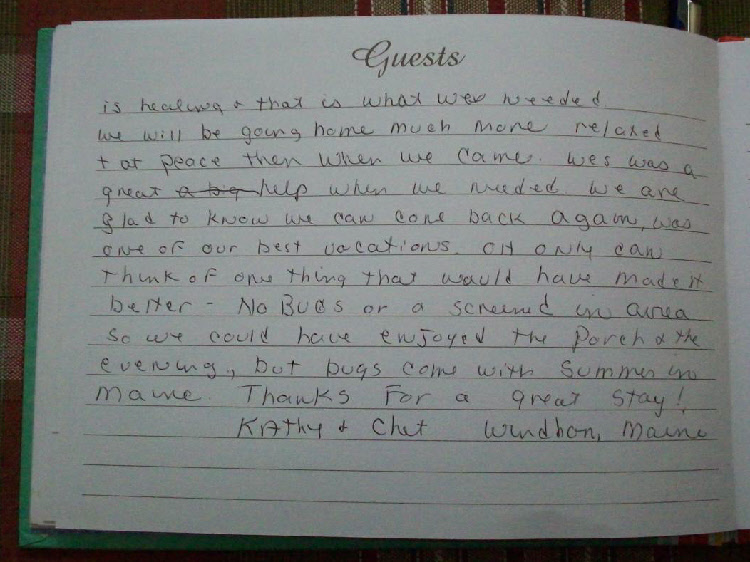 Guests
is healing & that is what was needed
we will be going home much more relaxed
+ at peace then when we came. Wes was a
great a big help when we needed. We are
glad to know we can come back again, was
one of our best vacations. Oh only can
think of one thing that would have made it
better - No Bugs or a screened in area
so we could have enjoyed the Porch & the
evening, but bugs come with Summer in
Maine. Thanks For a great stay!
KAthy & Chet Windham, Maine